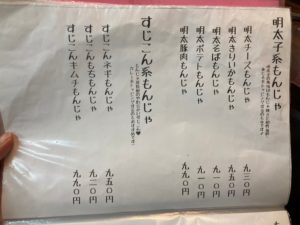 明太子系もんじゃ
明太チーズもんじゃ 九三〇円
明太きりいかもんじゃ 九五〇円
明太そばもんじゃ 九一〇円
明太ポテトもんじゃ 九一〇円
明太豚肉もんじゃ 九九〇円
すじこん系もんじゃ
すじこんネギもんじゃ 九五〇円
すじこんもちもんじゃ 九二〇円
すじこんキムチもんじゃ 九九〇円